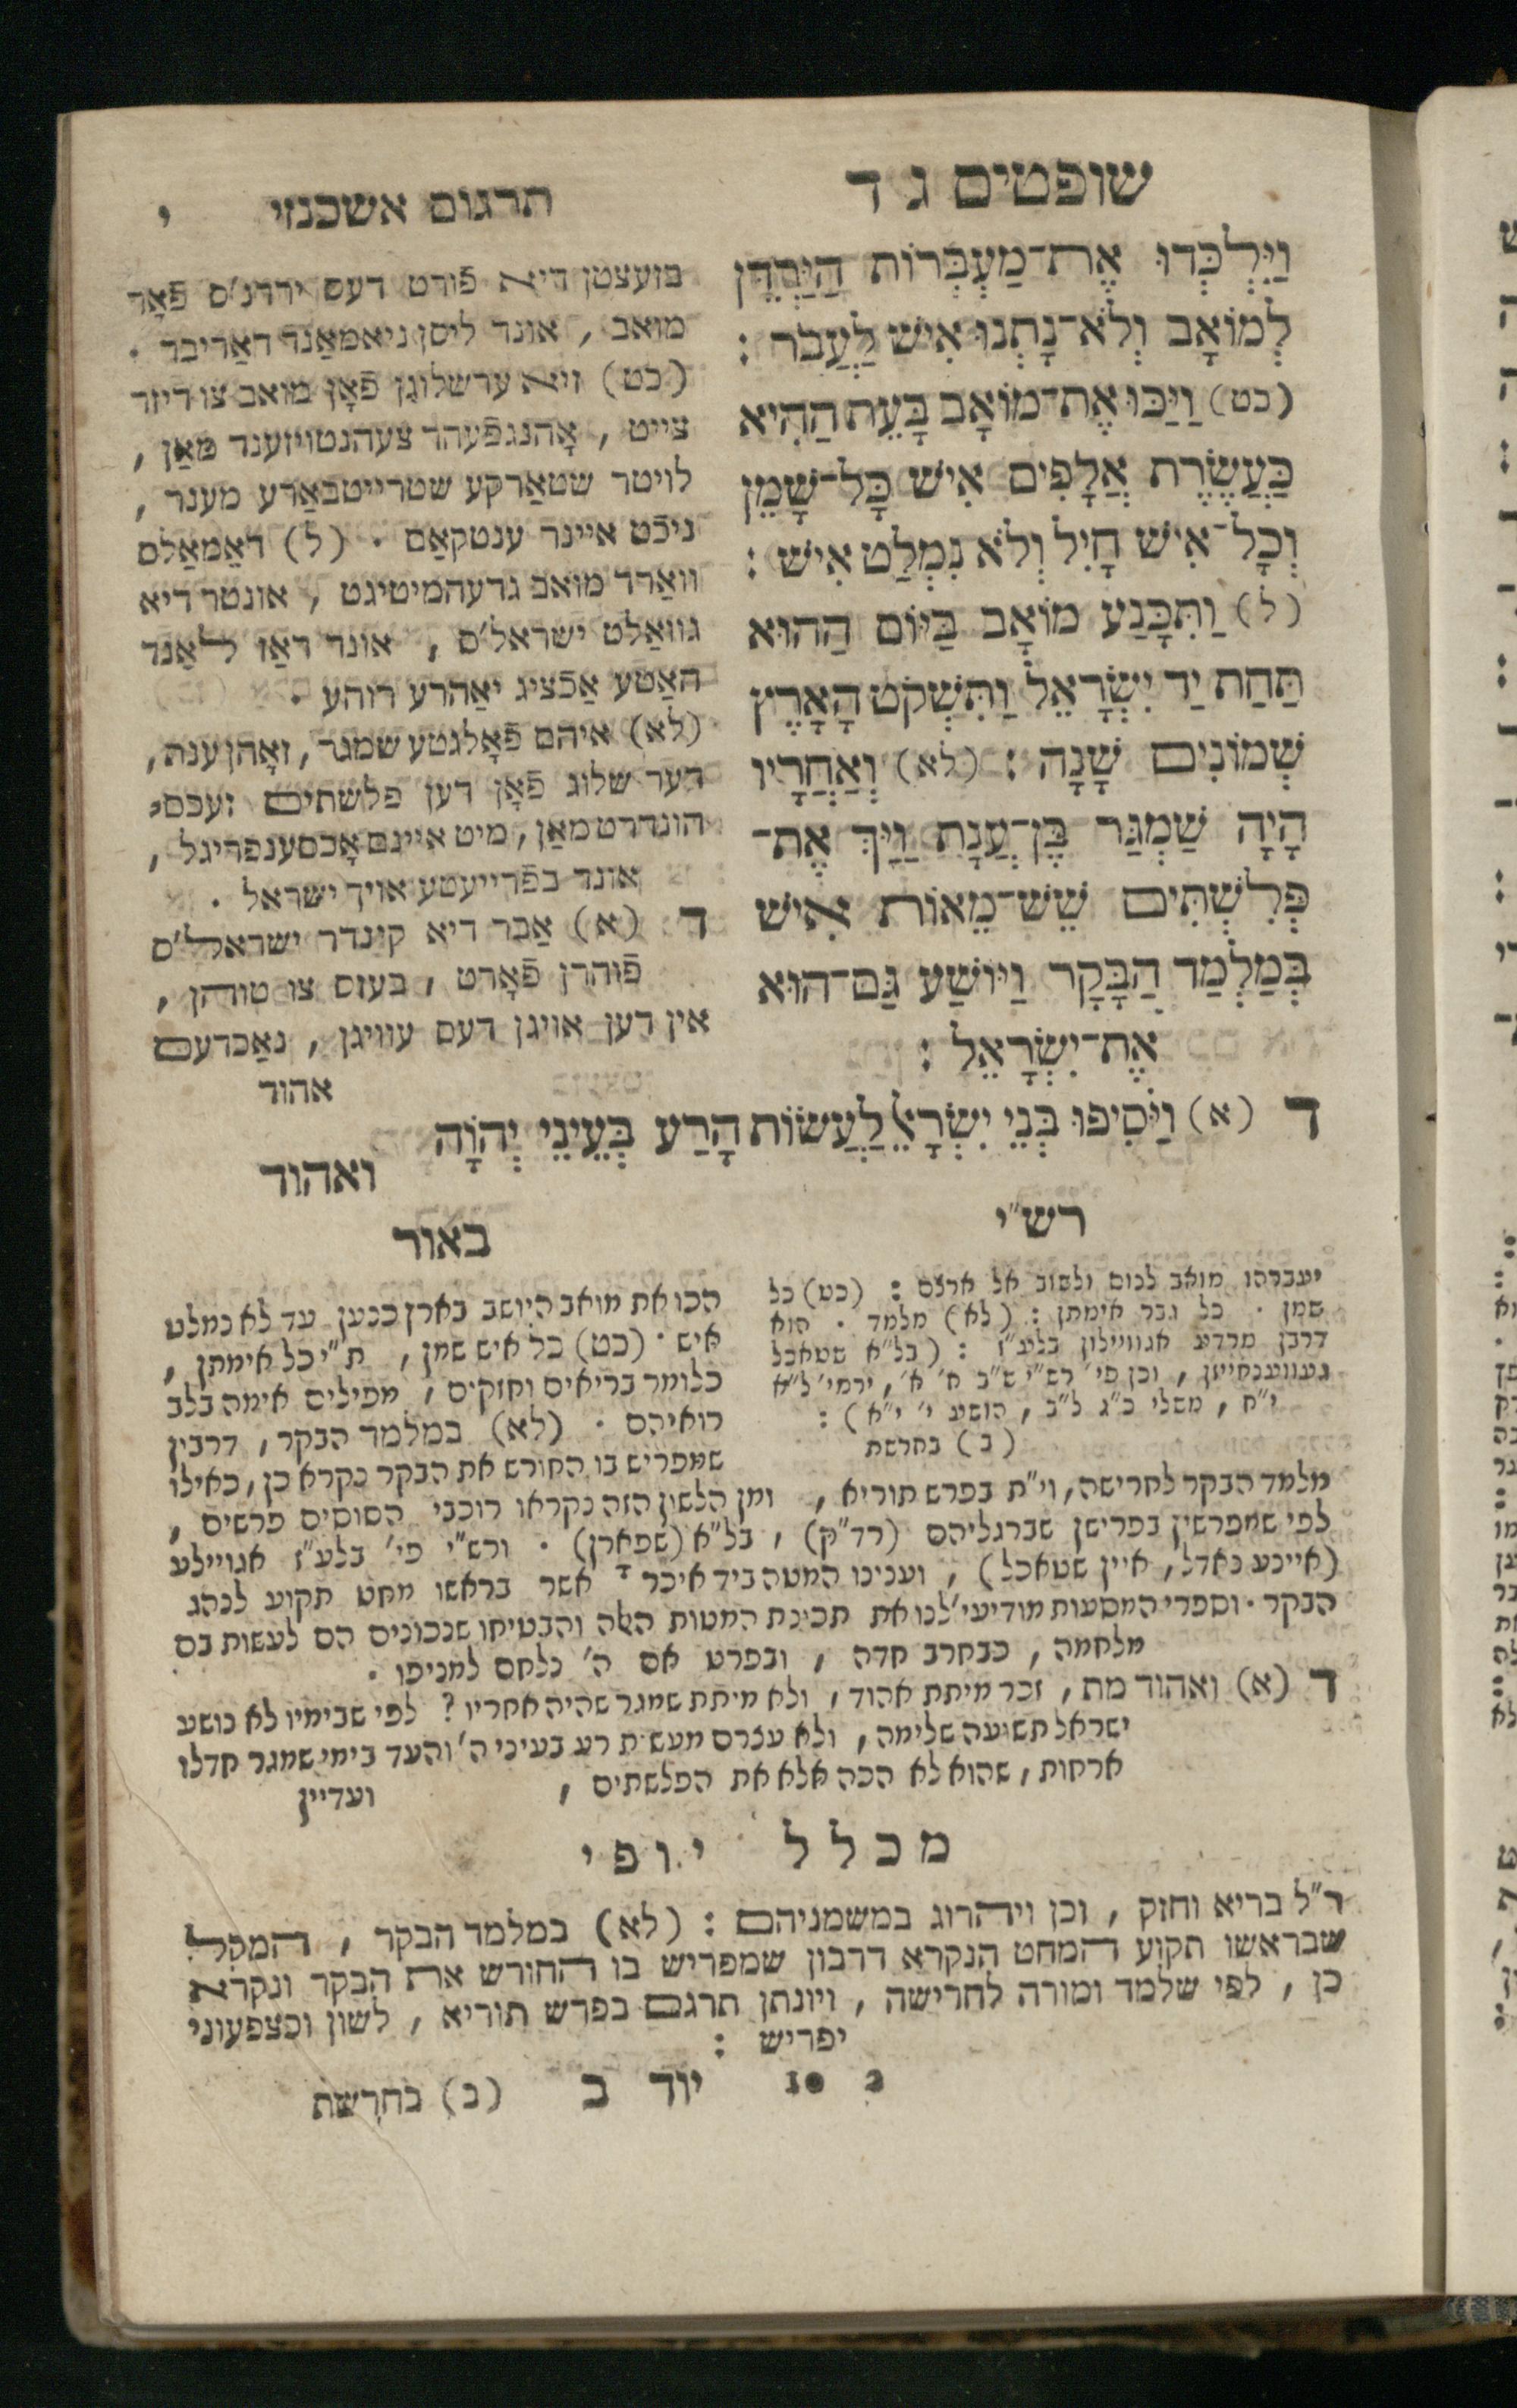 שופטים ג ד
וַיִּלְכְּדוּ אֶת־מַעְבְּרוֹת הַיַּרְדֵּן
לְמוֹאָב וְלֹא־נָתְנוּ אִישׁ לַעֲבֹר :
(כט) וַיַּכּוּ אֶת־מוֹאָב בָּעֵת הַהִיא
כַּעֲשֶׂרֶת אֲלָפִים אִישׁ כָּל־שָׁמֵן
וְכָל־אִישׁ חָיִל וְלֹא נִמְלַט אִישׁ :
(ל) וַתִּכָּנַע מוֹאָב בַּיּוֹם הַהוּא
תַּחַת יַד יִשְׂרָאֵל וַתִּשְׁקֹט הָאָרֶץ
שְׁמוֹנִים שָׁנָה : (לא) וְאַחֲרָיו
הָיָה שַׁמְגַּר בֶּן־עֲנָת וַיַּךְ אֶת־
פְּלִשְׁתִּים שֵׁשׁ־מֵאוֹת אִישׁ
בְּמַלְמַד הַבָּקָר וַיּוֹשַׁע גַּם־הוּא
אֶת־יִשְׂרָאֵל :
ד (א) וַיֹּסִיפוּ בְּנֵי יִשְׂרָאֵל לַעֲשׂוֹת הָרַע בְּעֵינֵי יְהוָֹה
ואהוד
תרגום אשכנזי י
בזעצטן דיא פֿורט דעס ירדנ'ס פֿאָר
מואב , אונד ליסן ניאמאַנד דאַריבר .
(כט) זיא ערשלוגן פֿאָן מואב צו דיזר
צייט , אָהנגפֿעהר צעהנטויזענד מאַן ,
לויטר שטאַרקע שטרייטבאַרע מענר ,
ניכֿט איינר ענטקאַם . (ל) דאַמאַלס
וואַרד מואב גדעהמיטיגט , אונטר דיא
גוואַלט ישראל'ס , אונד דאַז לאַנד
האַטע אַכֿציג יאַהרע רוהע .
(לא) איהם פֿאָלגטע שמגר , זאָהן ענת ,
דער שלוג פֿאָן דען פלשתים זעכס־
הונדרט מאַן , מיט איינם אָכסענפריגל ,
אונד בפֿרייעטע אויך ישראל .
ד (א) אַבר דיא קינדר ישראל'ס
פֿוהרן פֿאָרט , בעזס צו טוהן ,
אין דען אויגן דעס עוויגן , נאַכדעם
אהוד
רש"י
יעברהו מואב לנוס ולשוב אל ארצם : (כט) כל
שמן . כל גבר אימתן : (לא) מלמד . הוא
דרבן מרדע אגוויילון בלע"ז : (בל"א שטאכל
, וכן פי' רש"י ש"ב ח' א' , ירמי' ל"א
י"ח , משלי כ"ג ל"ב , הושע י' י"א) :
(ב) בחרשת
באור
הכו את מואב היושב בארץ כנען עד לא נמלט
איש . (כט) כל איש שמן , ת"י כל אימתן ,
כלומר בריאים וחזקים , מפילים אימה בלב
רואיהם . (לא) במלמד הבקר , דרבין
שמפריש בו החורש את הבקר נקרא כן , כאילו
מלמד הבקר לחרישה , וי"ת בפרש תוריא , ומן הלשון הזה נקראו רוכבי הסוסים פרשים ,
לפי שמפרשין בפרישן שברגליהם (רד"ק) , בל"א (שפארן) . ורש"י פי' בלע"ז אגויילע
(אייכע נאדל , איין שטאכל) , וענינו המטה ביד איכר אשר בראשו מחט תקוע לנהג
הבקר . וספרי המסעות מודיעי' לנו את תכונת המטות האלה והבטיחו שנכונים הם לעשות בם
מלחמה , כבחרב חדה , ובפרט אם ה' נלחם למניפו .
ד (א) ואהוד מת , זכר מיתת אהוד , ולא מיתת שמגר שהיה אחריו ? לפי שבימיו לא נושע
ישראל תשועה שלימה , ולא עצרם מעשית רע בעיני ה' והעד בימי שמגר חדלו
ארחות , שהוא לא הכה אלא את הפלשתים , ועדיין
מכלל יופי
ר"ל בריא וחזק , וכן ויהרוג במשמניהם : (לא) במלמד הבקר , המקל
שבראשו תקוע המחט הנקרא דרבון שמפריש בו החורש את הבקר ונקרא
כן , לפי שלמד ומורה לחרישה , ויונתן תרגם בפרש תוריא , לשון וכצפעוני
יפריש :
ב 10 יוד ב (ב) בחרשת